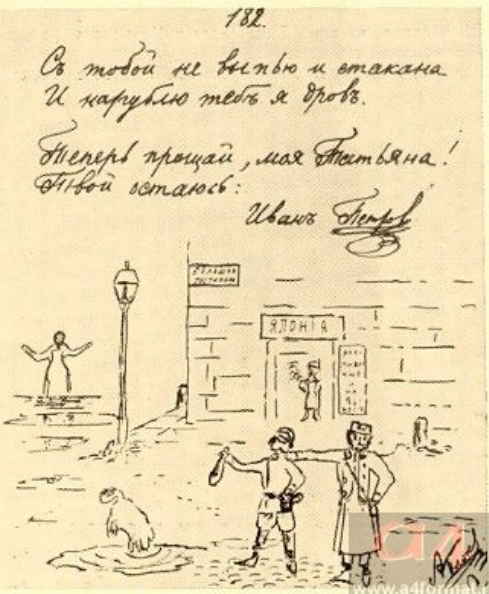 182.
Съ тобой не выпью и стакана
И нарублю тебѣ я дровъ.
Теперь прощай, моя Татьяна!
Твой остаюсь:
Иванъ Петров
БОЛЬШАЯ
ЯПОНІЯ
a4
www.a4format.r